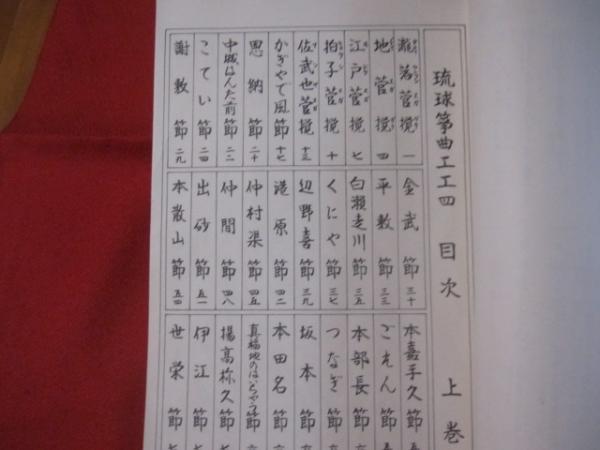 琉球箏曲工工四 目次 上巻
瀧落菅撹 一
地菅撹 四
江戸菅撹 七
拍子菅撹 十
佐武也菅撹 十三
かぎやで風節 十七
恩納節 二十
中城はんた前節 二二
こてい節 二四
謝敷節 二九
金武節 三十
平敷節 三三
白瀬走川節 三五
くにや節 三七
辺野喜節 三九
港原節 四二
仲村渠節 四五
仲間節 四八
出砂節 五一
本散山節 五四
本嘉手久節
ごえん節
本部長節
つなぎ節
坂本節
本田名節
真福地のはいちやう節
揚高祢久節
伊江節
世栄節